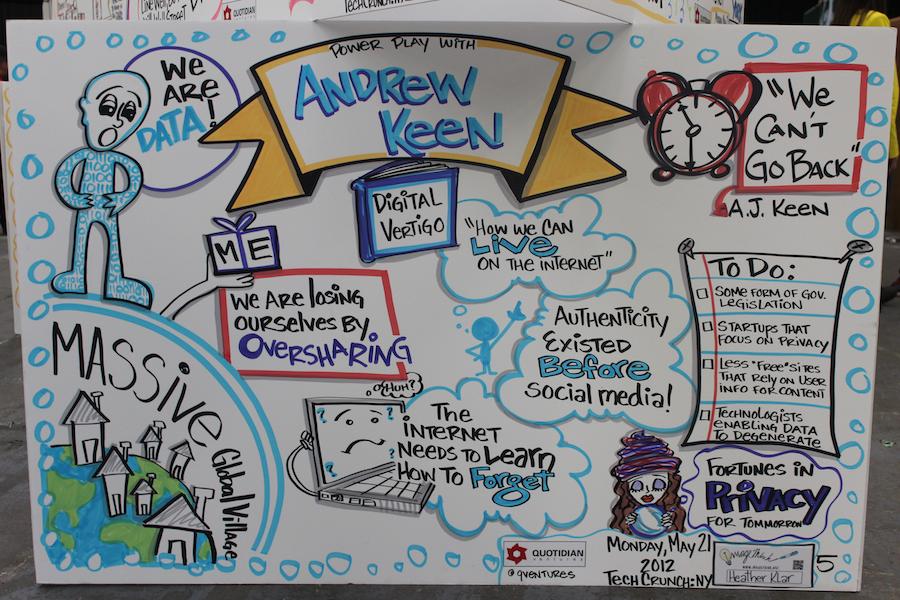 POWER PLAY WITH
ANDREW
KEEN
WE
ARE
DATA!
"WE
CAN'T
GO BACK"
A.J. KEEN
DIGITAL
VERTIGO
ME
WE ARE losing
OURSELVES BY
OVERSHARING
"HOW WE CAN
LIVE
ON THE INTERNET"
AUTHENTICITY
EXISTED
BEFORE
SOCIAL MEDIA!
TO DO:
SOME FORM OF GOV.
LEGISLATION
STARTUPS THAT
FOCUS ON PRIVACY
LESS "FREE" SITES
THAT RELY ON USER
INFO FOR CONTENT
TECHNOLOGISTS
ENABLING DATA
TO DEGENERATE
MASSIVE
Global Village
HUH?
THE
INTERNET
NEEDS TO LEARN
HOW TO FORGET
FORTUNES IN
PRIVACY
FOR TOMMORROW
QUOTIDIAN
VENTURES
@QVENTURES
MONDAY, MAY 21
2012
TECHCRUNCH:NY
ImageThink
Heather Klar
5